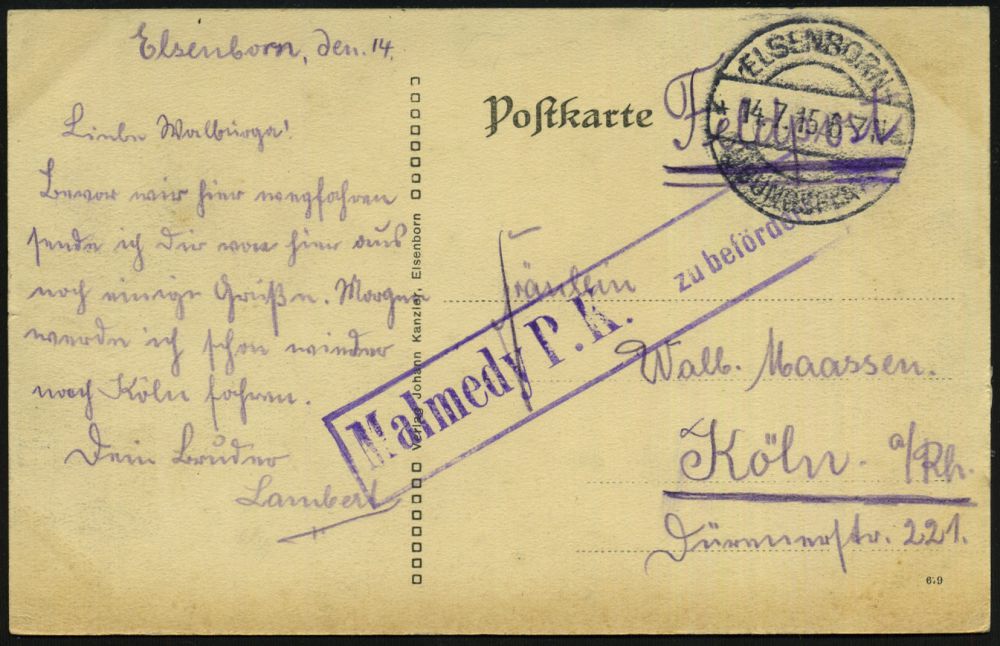 Elsenborn, den. 14.
Liebe Walburga!
Bevor wir hier wegfahren
sende ich Dir von hier aus
noch einige Grüße. Morgen
werde ich schon wieder
nach Köln fahren.
Dein Bruder
Lambert
Verlag Johann Kanzler, Elsenborn
Postkarte
Feldpost
ELSENBORN
14.7.15.6-7N
Malmedy P. K.
zu befördern
Fräulein
Walb. Maassen.
Köln. a/Rh.
Dürenerstr. 221.
6.9